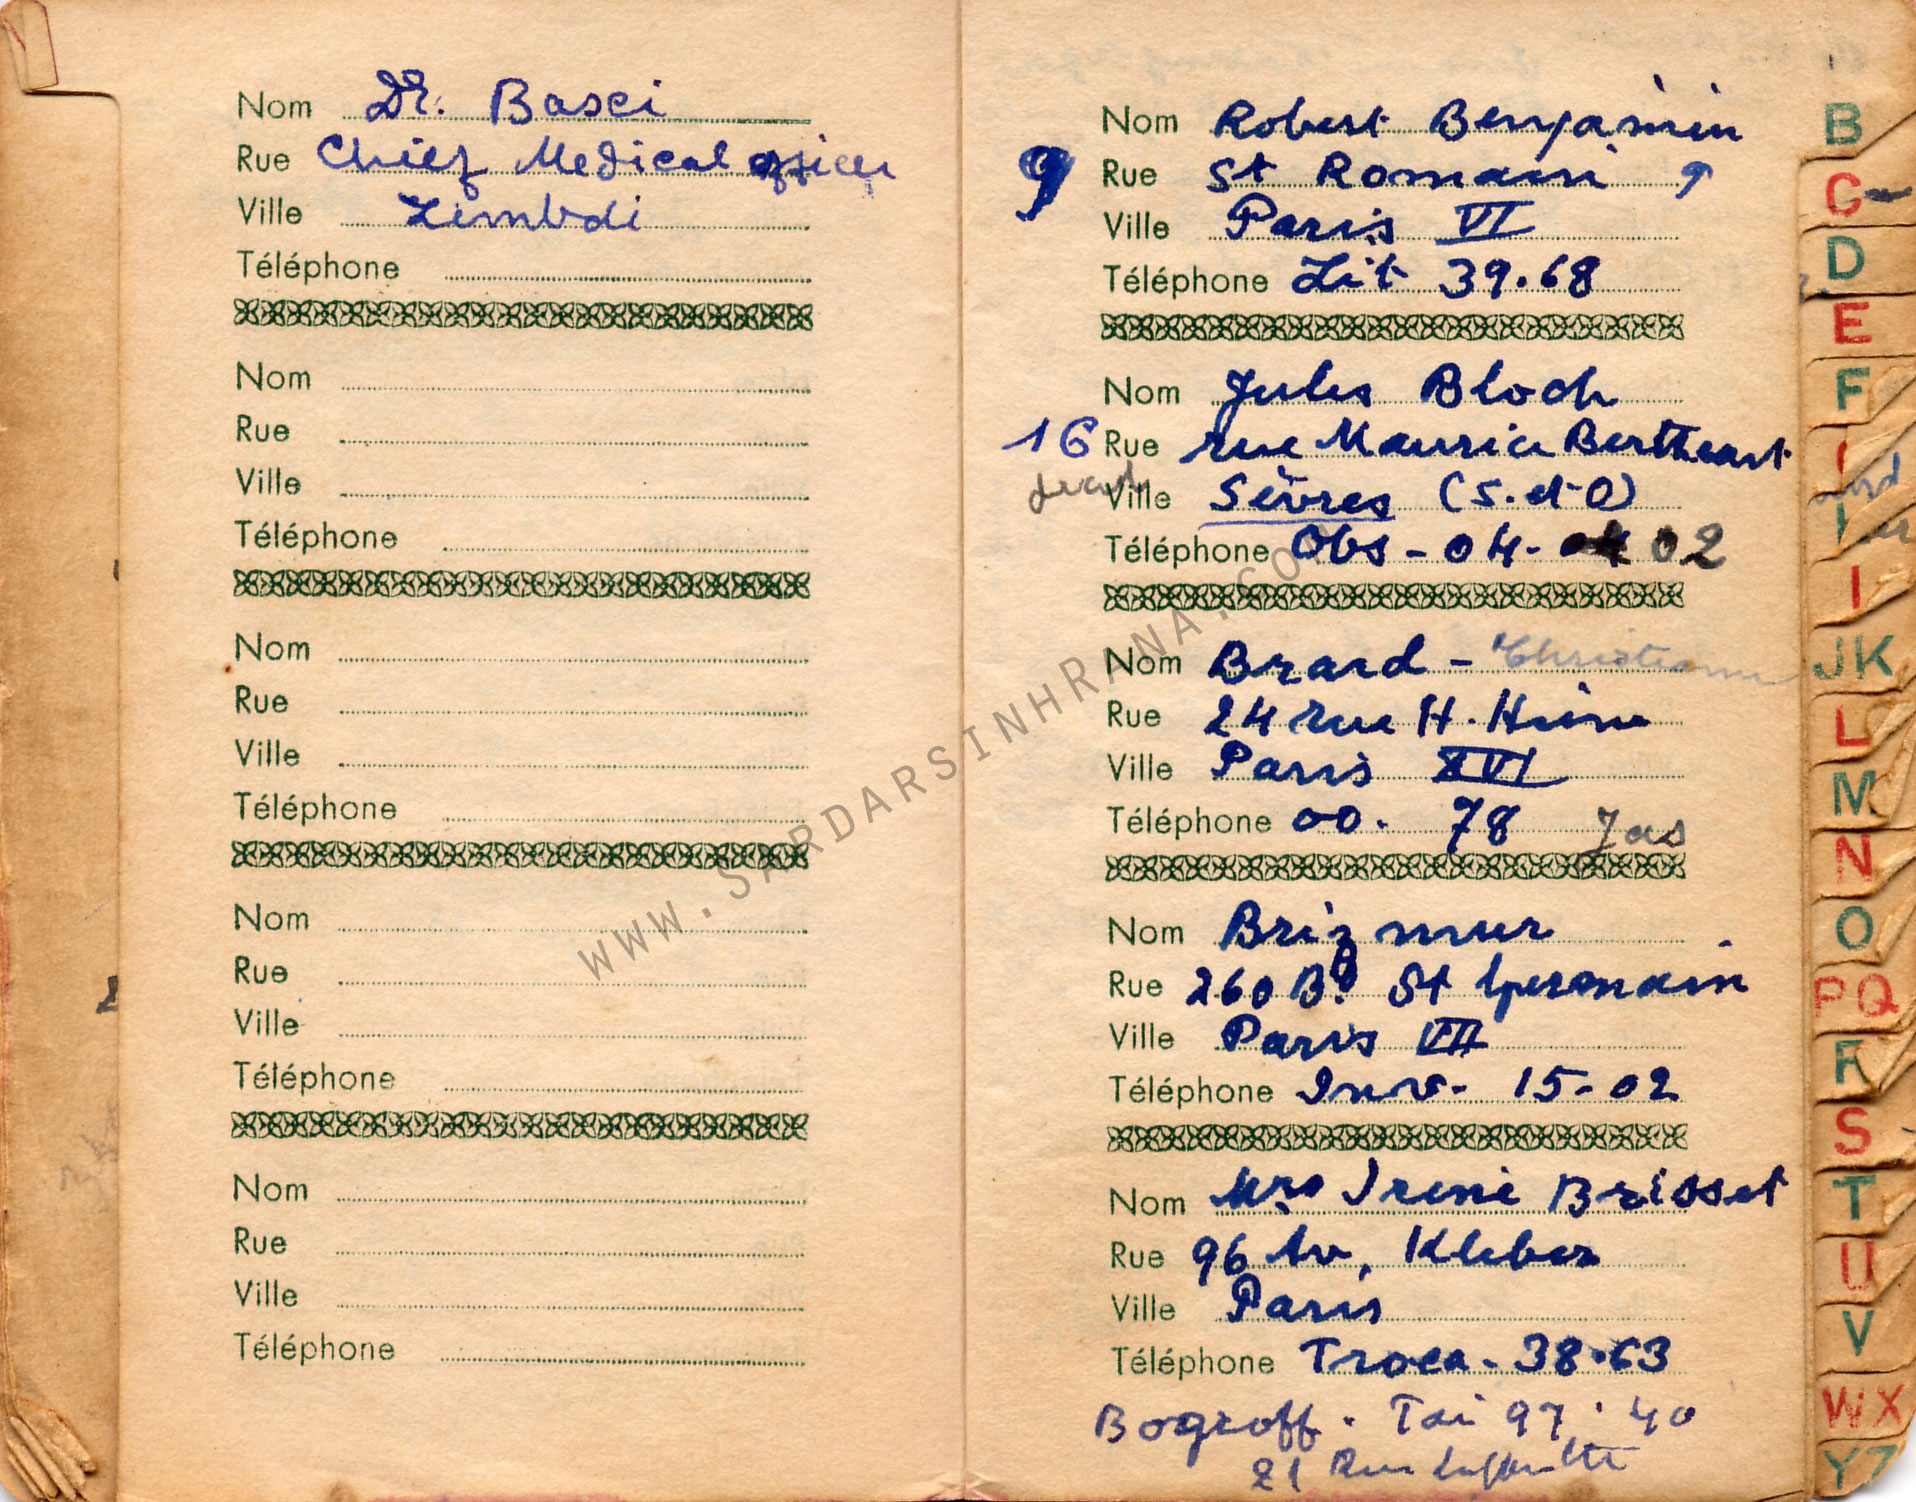 Nom Dr. Basci
Rue Chief Medical officer
Ville Limbdi
Téléphone
Nom
Rue
Ville
Téléphone
Nom
Rue
Ville
Téléphone
Nom
Rue
Ville
Téléphone
Nom
Rue
Ville
Téléphone
Nom Robert Benjamin
9 Rue St Romain 9
Ville Paris VI
Téléphone Lit 39.68
Nom Jules Bloch
16 Rue rue Maurice Bertheart
Ville Sèvres (S.et-O)
Téléphone Obs - 04 - 02
Nom Brard - Christiane
Rue 24 rue H. Heine
Ville Paris XVI
Téléphone 00. 78 Jas
Nom Briz mur
Rue 260 Bd St Germain
Ville Paris VII
Téléphone Inv - 15 - 02
Nom Mrs Irene Brisset
Rue 96 Av, Kleber
Ville Paris
Téléphone Troca - 38.63
Bogroff . Tai 97 . 40
21 Rue Lafayette
B
C
D
E
F
I
JK
L
M
N
O
PQ
R
S
T
U
V
WX
YZ
WWW.SARDARSINHRANA.COM